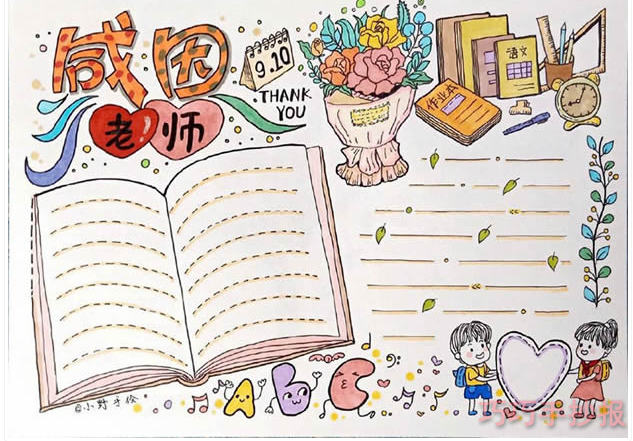 感恩
9.10
THANK
YOU
老师
语文
作业本
A b C
巧巧手抄报